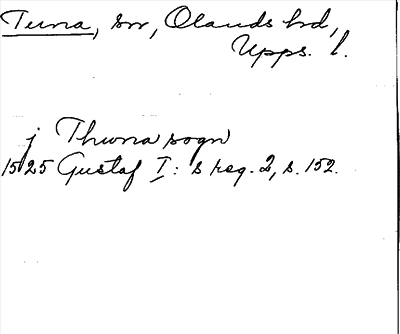 Tuna, sn, Olands hd,
Upps. l.
j Thwna sogn
1525 Gustaf I:s reg. 2, s. 152.